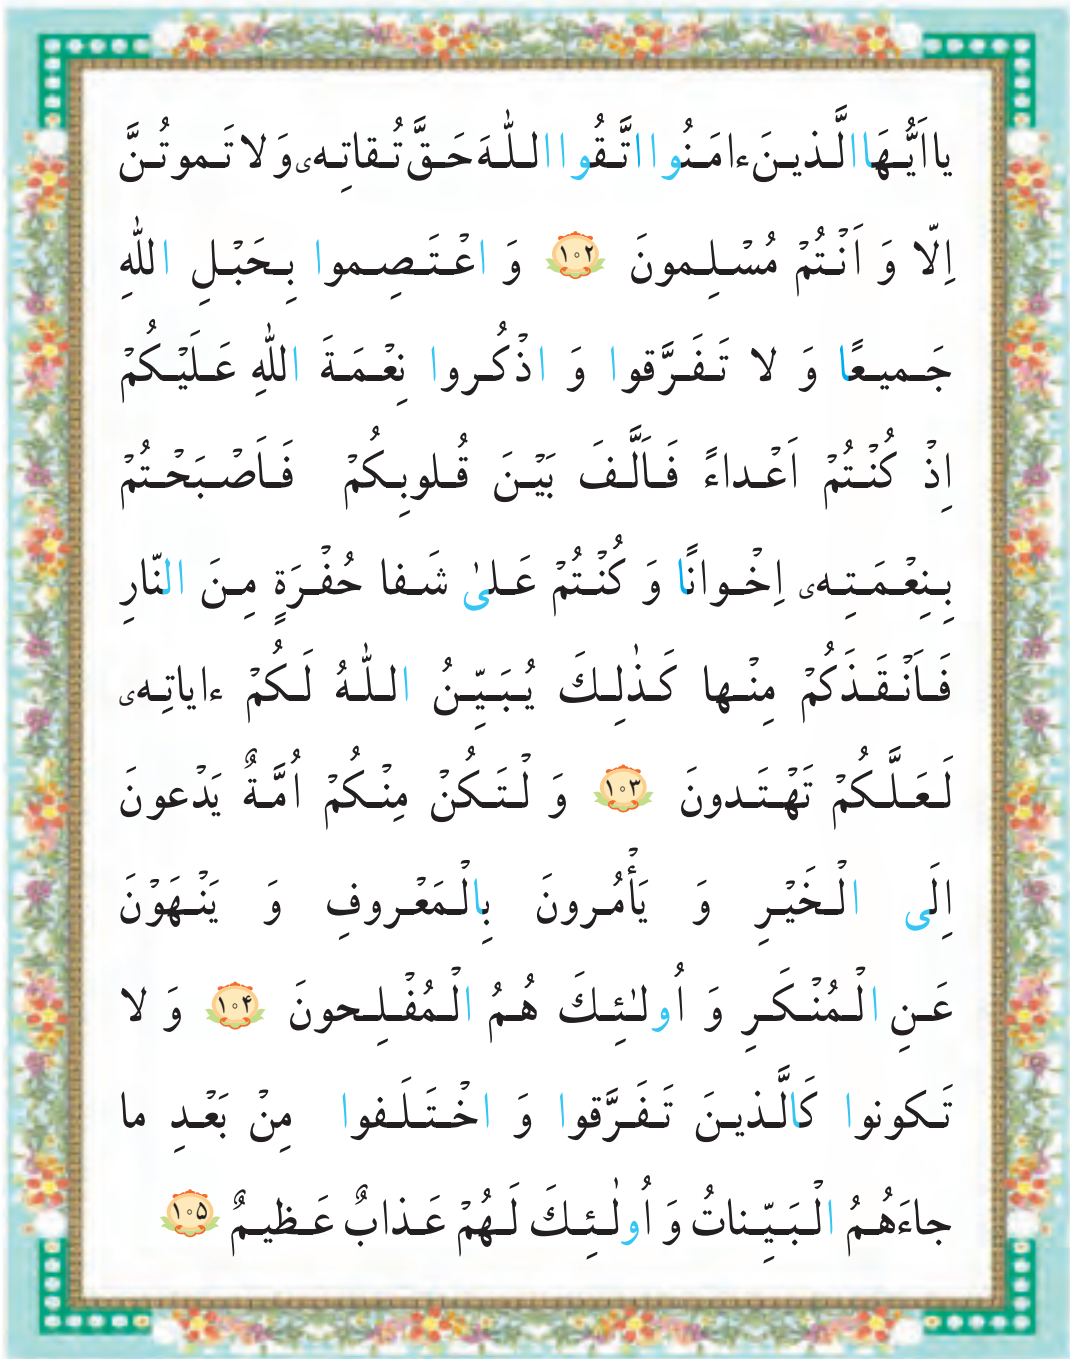 يااَيُّهَا الَّذينَ ءامَنُوا اتَّقُوا اللّٰهَ حَقَّ تُقاتِهى وَ لا تَموتُنَّ
اِلّا وَ اَنْتُمْ مُسْلِمونَ ۱۰۲ وَ اعْتَصِموا بِحَبْلِ اللّٰهِ
جَميعًا وَ لا تَفَرَّقوا وَ اذْكُروا نِعْمَةَ اللّٰهِ عَلَيْكُمْ
اِذْ كُنْتُمْ اَعْداءً فَاَلَّفَ بَيْنَ قُلوبِكُمْ فَاَصْبَحْتُمْ
بِنِعْمَتِهى اِخْوانًا وَ كُنْتُمْ عَلىٰ شَفا حُفْرَةٍ مِنَ النّارِ
فَاَنْقَذَكُمْ مِنْها كَذٰلِكَ يُبَيِّنُ اللّٰهُ لَكُمْ ءاياتِهى
لَعَلَّكُمْ تَهْتَدونَ ۱۰۳ وَ لْتَكُنْ مِنْكُمْ اُمَّةٌ يَدْعونَ
اِلَى الْخَيْرِ وَ يَأْمُرونَ بِالْمَعْروفِ وَ يَنْهَوْنَ
عَنِ الْمُنْكَرِ وَ اُولٰئِكَ هُمُ الْمُفْلِحونَ ۱۰۴ وَ لا
تَكونوا كَالَّذينَ تَفَرَّقوا وَ اخْتَلَفوا مِنْ بَعْدِ ما
جاءَهُمُ الْبَيِّناتُ وَ اُولٰئِكَ لَهُمْ عَذابٌ عَظيمٌ ۱۰۵